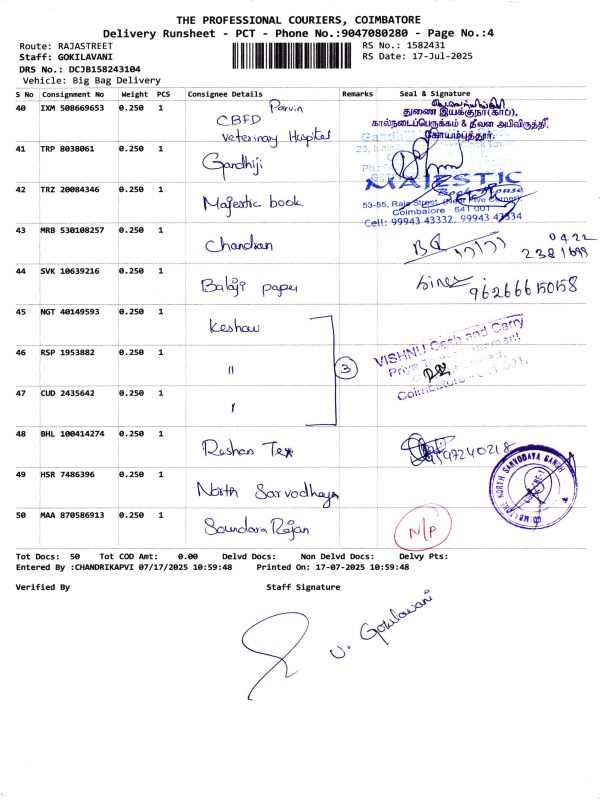 THE PROFESSIONAL COURIERS, COIMBATORE
Delivery Runsheet - PCT - Phone No.:9047080280 - Page No.:4
Route: RAJASTREET
RS No.: 1582431
Staff: GOKILAVANI
RS Date: 17-Jul-2025
DRS No.: DCJB158243104
Vehicle: Big Bag Delivery
S No Consignment No Weight PCS Consignee Details Remarks Seal & Signature
40 IXM 508669653 0.250 1 Parvin
CBFD
Veterinary Hospital
துணை இயக்குநர்(காப),
கால்நடைப்பெருக்கம் & தீவன அபிவிருத்தி,
கோயம்புத்தூர்.
41 TRP 8038061 0.250 1 Gandhiji
42 TRZ 20084346 0.250 1 Majestic book
MAJESTIC
Book House
53-55, Raja Street, (Near Five Corner)
Coimbatore - 641 001
Cell: 99943 43332, 99943 43334
43 MRB 530108257 0.250 1 Chandran
0422
2381699
44 SVK 10639216 0.250 1 Balaji paper
9626661508
45 NGT 40149593 0.250 1 Keshav
46 RSP 1953882 0.250 1 "
3
VISHNU Cash and Carry
47 CUD 2435642 0.250 1 "
48 BHL 100414274 0.250 1 Roshan Tex
97240218
49 HSR 7486396 0.250 1 North Sarvodhaya
COIMBATORE NORTH SARVODAYA SANGH
50 MAA 870586913 0.250 1 Soundara Rajan
N/P
Tot Docs: 50 Tot COD Amt: 0.00 Delvd Docs: Non Delvd Docs: Delvy Pts:
Entered By :CHANDRIKAPVI 07/17/2025 10:59:48 Printed On: 17-07-2025 10:59:48
Verified By Staff Signature
V. Gokilavani